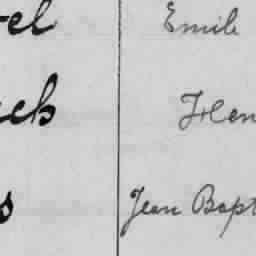 el Emile
ch Hen
s Jean Bapt